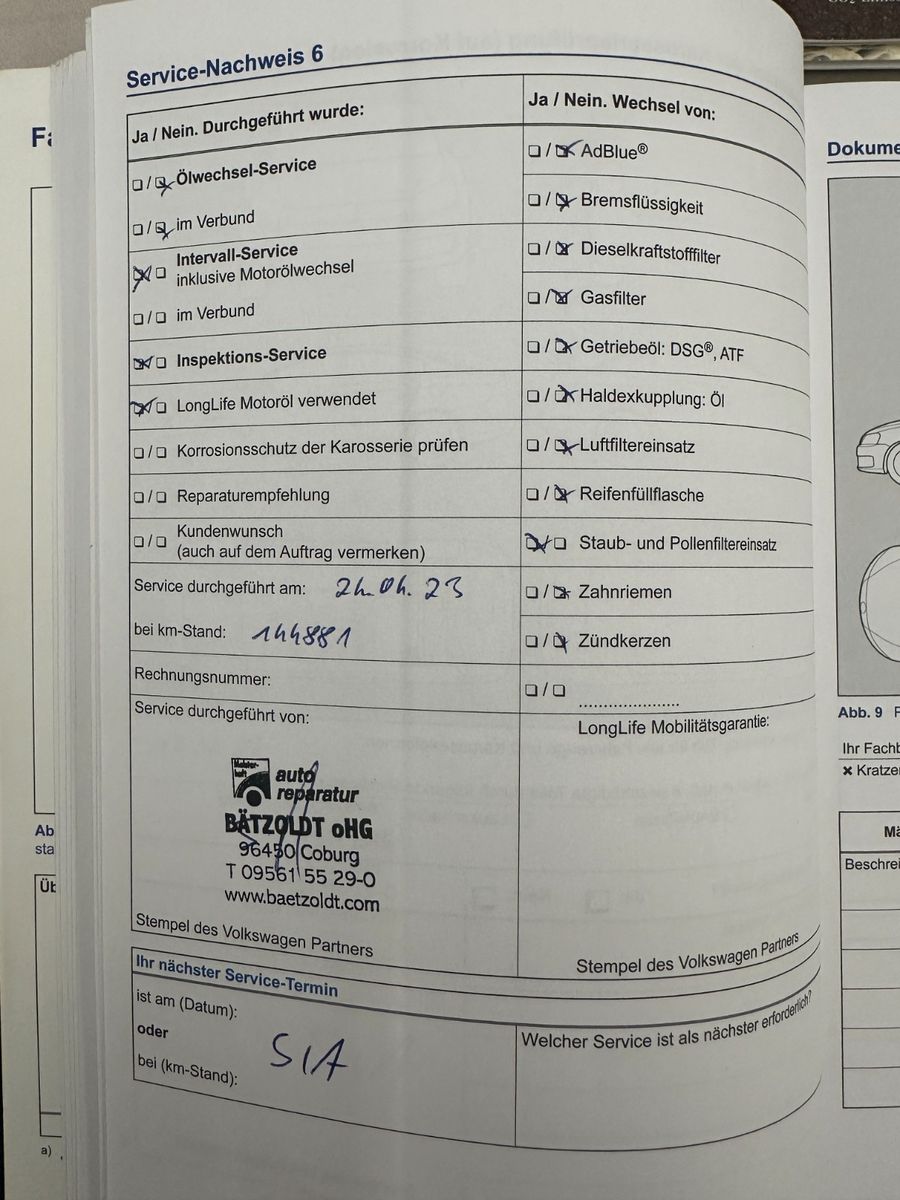 Service-Nachweis 6
Ja / Nein. Durchgeführt wurde:
❏ / ❏ Ölwechsel-Service
❏ / ❏ im Verbund
❏ / ❏ Intervall-Service
inklusive Motorölwechsel
❏ / ❏ im Verbund
❏ / ❏ Inspektions-Service
❏ / ❏ LongLife Motoröl verwendet
❏ / ❏ Korrosionsschutz der Karosserie prüfen
❏ / ❏ Reparaturempfehlung
❏ / ❏ Kundenwunsch
(auch auf dem Auftrag vermerken)
Service durchgeführt am: 24.04.23
bei km-Stand: 144881
Rechnungsnummer:
Service durchgeführt von:
Meister-
haft
auto
reparatur
BÄTZOLDT oHG
96450 Coburg
T 09561 55 29-0
www.baetzoldt.com
Stempel des Volkswagen Partners
Ja / Nein. Wechsel von:
❏ / ❏ AdBlue®
❏ / ❏ Bremsflüssigkeit
❏ / ❏ Dieselkraftstofffilter
❏ / ❏ Gasfilter
❏ / ❏ Getriebeöl: DSG®, ATF
❏ / ❏ Haldexkupplung: Öl
❏ / ❏ Luftfiltereinsatz
❏ / ❏ Reifenfüllflasche
❏ / ❏ Staub- und Pollenfiltereinsatz
❏ / ❏ Zahnriemen
❏ / ❏ Zündkerzen
❏ / ❏ .....................
LongLife Mobilitätsgarantie:
Stempel des Volkswagen Partners
Ihr nächster Service-Termin
ist am (Datum):
oder
bei (km-Stand):
SIA
Welcher Service ist als nächster erforderlich?
Dokume
Abb. 9
Ihr Fachb
✖ Kratze
Mä
Beschrei
Ab
sta
a)